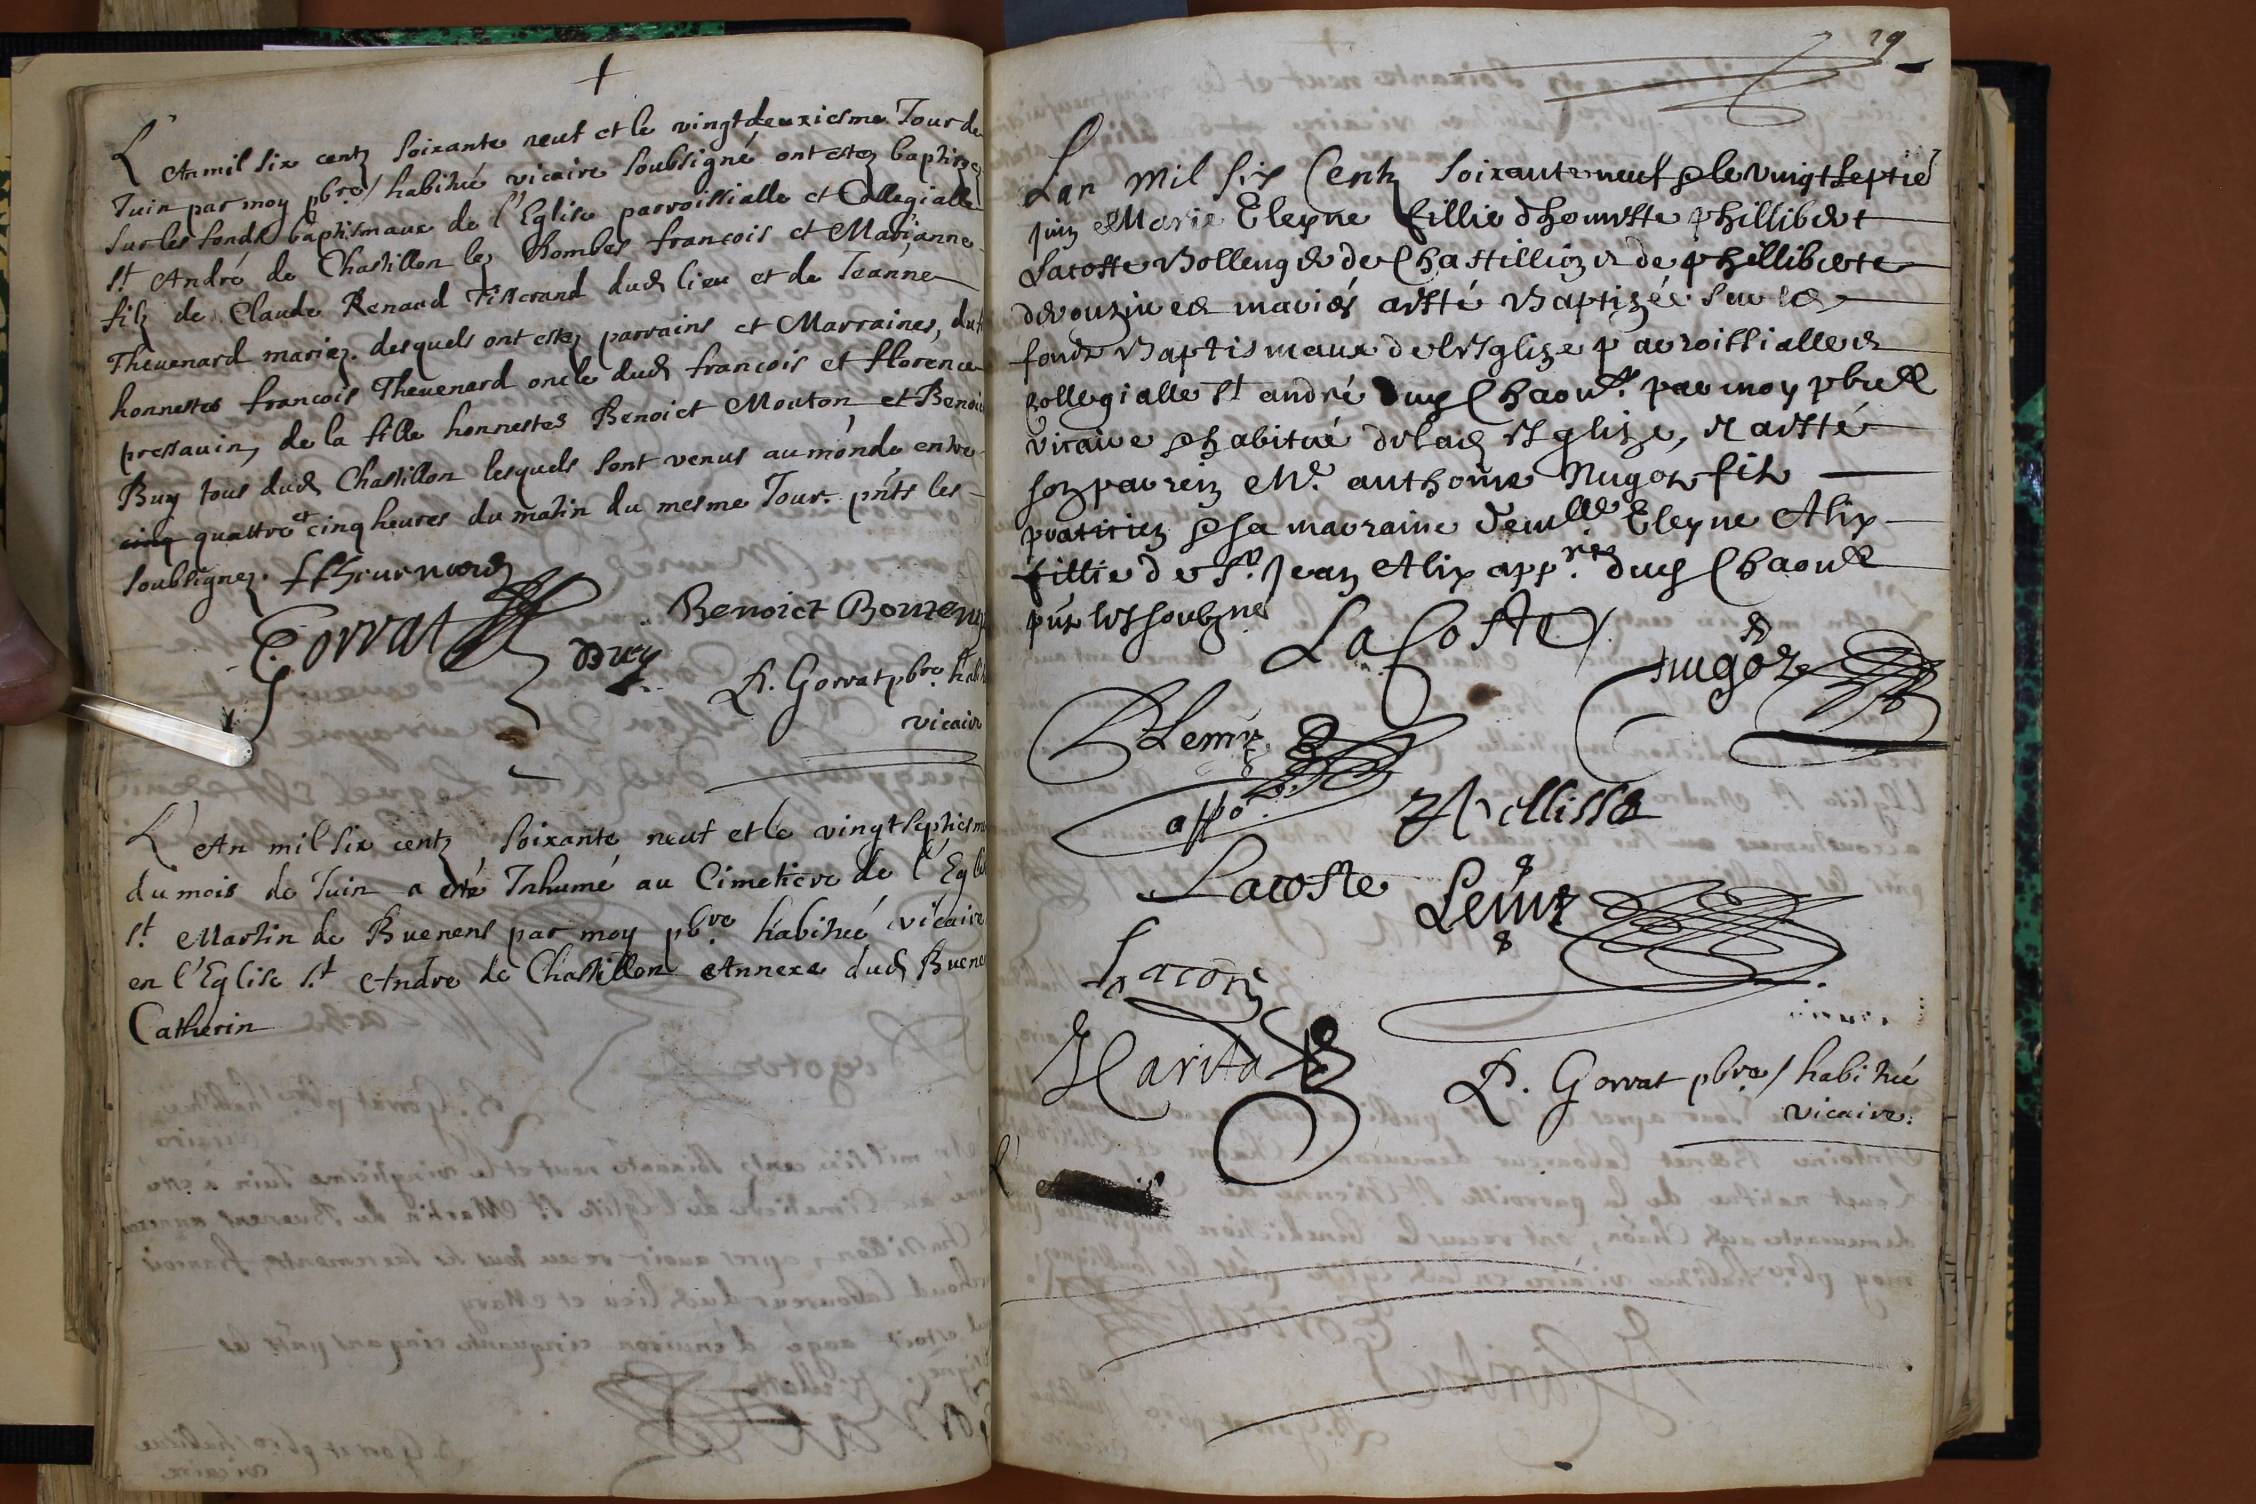 L'An mil six centz soixante neuf et le vingtdeuxiesme Jour de
Juin par moy pbre / habitué vicaire soubsigné ont estez baptisez
sur les fonds baptismaux de l'Eglise parroissialle et Collegialle
St André de Chastillon lez Dombes francois et Marianne
filz de Claude Renaud Tisserand dud lieu et de Jeanne
Thevenard mariez. desquels ont estez parrains et Marraines, du f
honnestes francois Thevenard oncle dud francois et florence
pressavin, de la fille honnestes Benoict Mouton et Benoi
Buy tous dud Chastillon lesquels sont venus au monde entre
cinq quattre et cinq heures du matin du mesme Jour. pnts les
soubsignez.
Gorvat
Buy
Benoict
P. Gorvat pbre habi
vicaire
L'An mil six centz soixante neuf et le vingtseptiesm
du mois de Juin a esté Inhumé au Cimetiere de l'Egli
St Martin de Buenens par moy pbre habitué vicaire
en l'Eglise St Andre de Chastillon Annexe dud Buene
Catherin
29
Lan mil six Centz soixante neuf & le vingtseptie
juin Marie Eleyne fillie dhonneste phillibert
Lacoste Bollenger de Chastillion & de philliberte
mariés a esté Baptizée sur les
fondz Baptismaux de leglize parroissialle &
collegialle St andré dud Chaon par moy pbre
vicaire & habitué de lad Eglize, & a esté
son parrein Me anthoine Nugoz filz
praticien & sa marraine demlle Eleyne Alix
fillie de Sr Jean Alix appre dud Chaon
pnt les soubzne
LaCoste
nugoz
appo
Lacoste
P. Gorvat pbre / habitué
vicaire.
L'